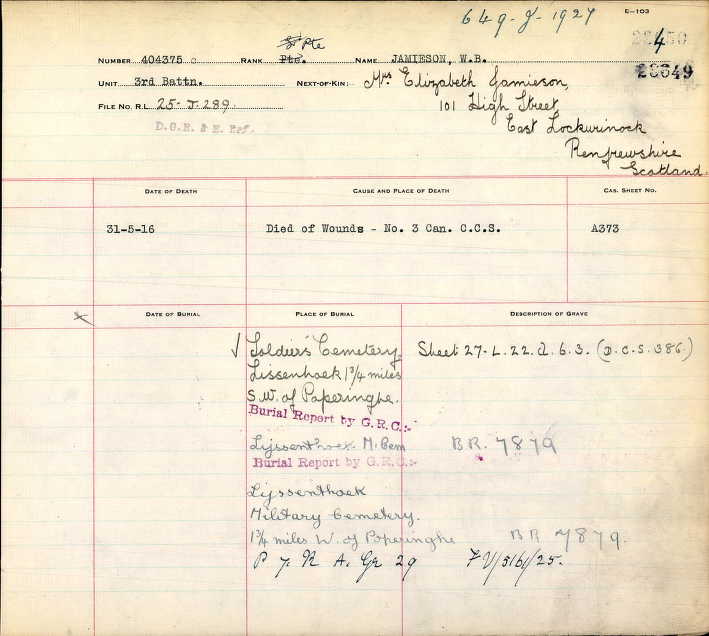 649-J-1927
E-103
4
28649
Pte
NUMBER 404375 C RANK Pte. NAME JAMIESON, W.B.
UNIT 3rd Battn. NEXT-OF-KIN: Mrs Elizabeth Jamieson,
101 High Street
FILE NO. R.L. 25-J-289.
East Lockwinock
D.G.R. & E. Ref.
Renfrewshire
Scotland.
DATE OF DEATH CAUSE AND PLACE OF DEATH CAS. SHEET NO.
31-5-16 Died of Wounds - No. 3 Can. C.C.S. A373
DATE OF BURIAL PLACE OF BURIAL DESCRIPTION OF GRAVE
Soldiers' Cemetery, Sheet 27-L.22.d.6.3. (D.C.S. 386.)
Lissenhoek 1 3/4 miles
S.W. of Poperinghe.
Burial Report by G.R.C.:-
Lijssenthoek M. Cem BR. 7879
Burial Report by G.R.C.:-
Lijssenthoek
Military Cemetery.
1 3/4 miles W. of Poperinghe BR 7879.
P 7. R A. Gr 29